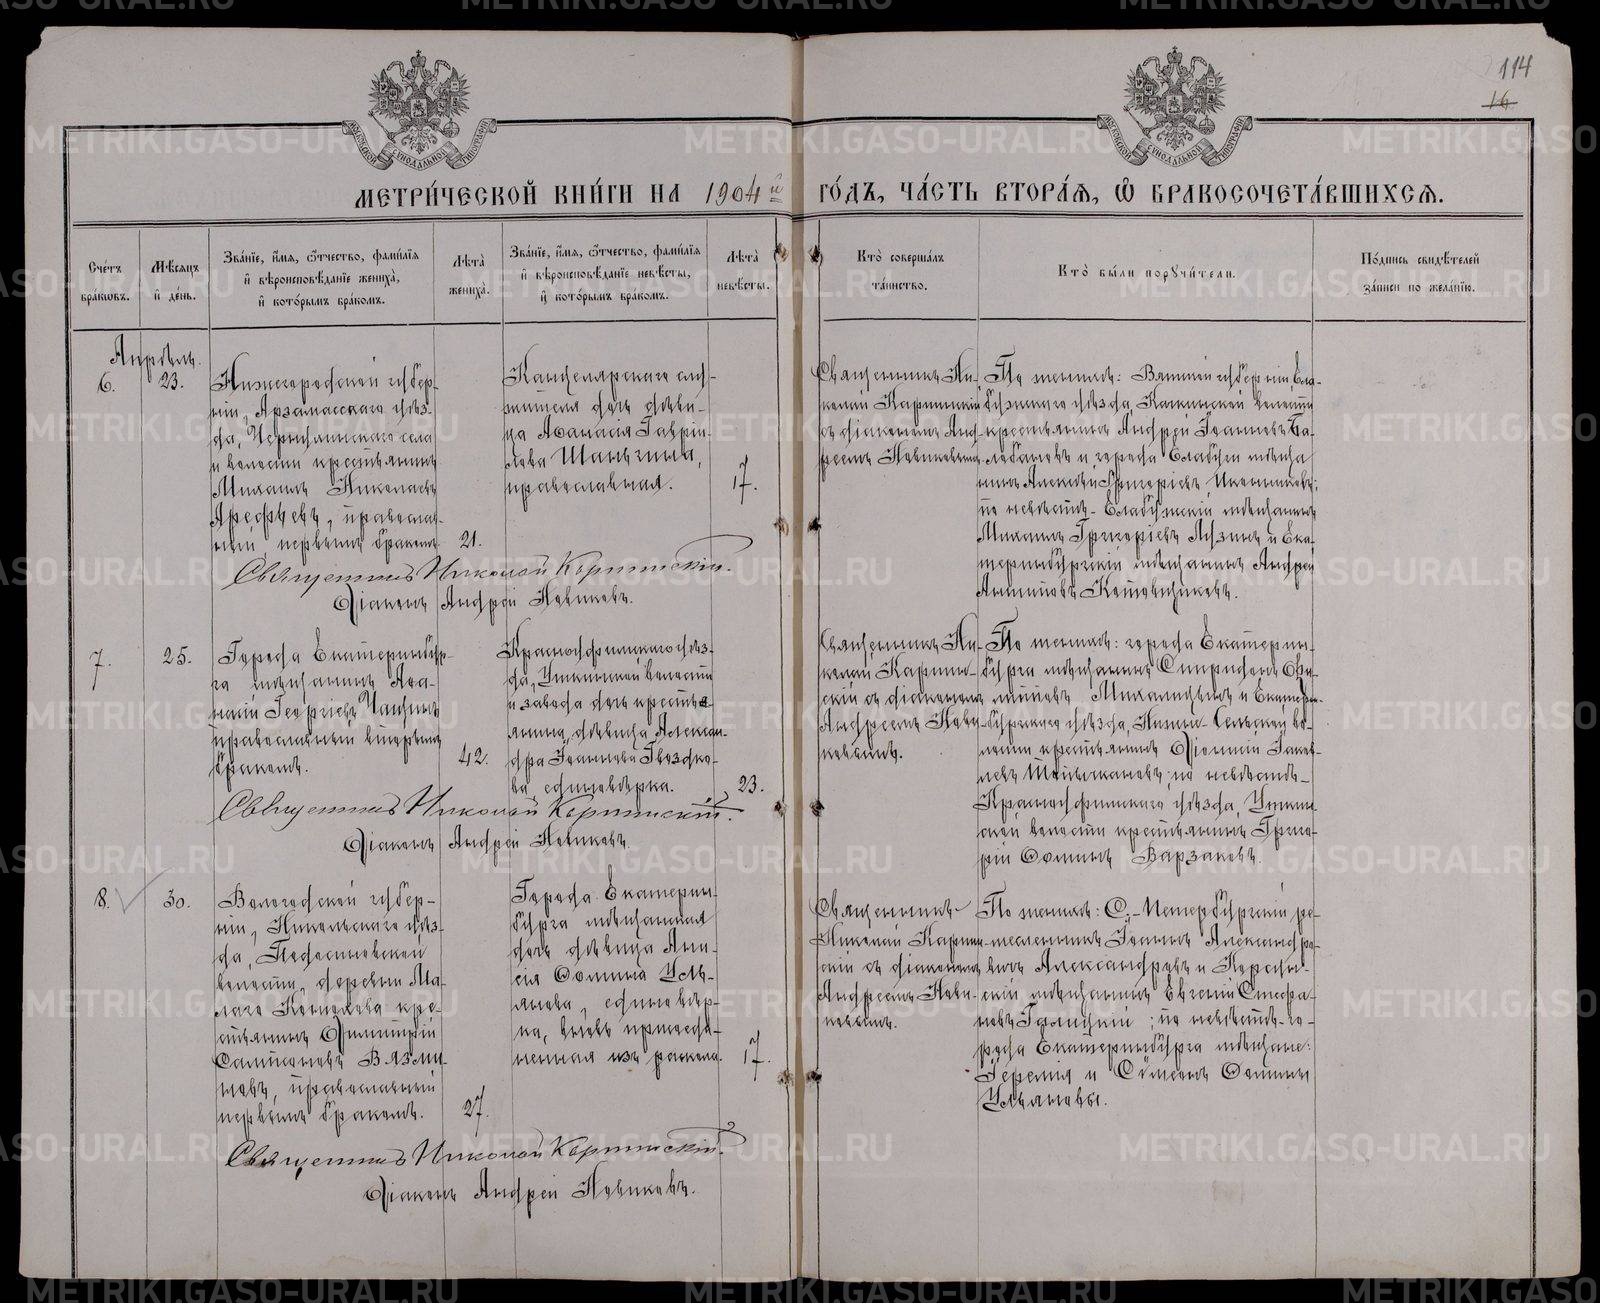 114
16
МОСКОВСКОЙ СѴНОДАЛЬНОЙ ТИПОГРАФІИ
МОСКОВСКОЙ СѴНОДАЛЬНОЙ ТИПОГРАФІИ
МЕТРИ́ЧЕСКОЙ КНИ́ГИ НА 1904й ГО́ДЪ, ЧА́СТЬ ВТОРА́Ѧ, Ѡ БРАКОСОЧЕТА́ВШИХСѦ.
Сче́тъ бра́кѡвъ.
Мѣ́сѧцъ и̂ де́нь.
Зва́нїе, и́мѧ, ѻ҆́тчество, фами́лїѧ и҆ вѣроисповѣ́данїе жениха̀, и҆ кото́рымъ бра́комъ.
Лѣ́та жениха̀.
Зва́нїе, и́мѧ, ѻ҆́тчество, фами́лїѧ и҆ вѣроисповѣ́данїе невѣ́сты, и҆ кото́рымъ бра́комъ.
Лѣ́та невѣ́сты.
Кто̀ соверша́лъ та́инство.
Кто̀ бы́ли порꙋчи́тели.
По́дпись свидѣ́телей за́писи по жела́нїю.
Апрѣль.
6.
23.
Нижегородской губер-
ніи, Арзамасскаго уѣз-
да, села
и волости крестьянинъ
Михаилъ Николаевъ
Арефьевъ, православ-
ный, первымъ бракомъ
21.
Канцелярскаго слу-
жителя дочь дѣви-
ца Аѳанасія Гаврии-
лова Шаньгина,
православная.
17.
Священникъ Ни-
колай Карпинскій
съ діакономъ Анд-
реемъ Новиковымъ.
По женихѣ: Вятской губерніи, Ела-
бужскаго уѣзда, волости
крестьянинъ Андрей Іоанновъ Ба-
лобановъ и города Елабуги мѣща-
нинъ Алексѣй Григорьевъ Иконниковъ;
по невѣстѣ - Елабужскій мѣщанинъ
Михаилъ Григорьевъ Лузинъ и Ека-
теринбургскій мѣщанинъ Андрей
Котовщиковъ.
Священникъ Николай Карпинскій.
Діаконъ Андрей Новиковъ.
7.
25.
Города Екатеринбур-
га мѣщанинъ Аѳа-
насій Георгіевъ Чащинъ
православный вторымъ
бракомъ.
42.
Красноуфимскаго уѣз-
да, Уткинской волости
и завода дочь крестья-
нина, дѣвица Алексан-
дра Іоаннова Гвоздко-
ва, единовѣрка.
23.
Священникъ Ни-
колай Карпин-
скій съ діакономъ
Андреемъ Нови-
ковымъ.
По женихѣ: города Екатерин-
бурга мѣщанинъ Спиридонъ Фи-
липповъ и Екатерин-
бургскаго уѣзда, Нижне-Сельской во-
лости крестьянинъ Діонисій Іаков-
левъ; по невѣстѣ -
Красноуфимскаго уѣзда, Уткин-
ской волости крестьянинъ Григо-
рій Ѳоминъ Варзаковъ.
Священникъ Николай Карпинскій.
Діаконъ Андрей Новиковъ.
8.
30.
Вологодской губер-
ніи, Никольскаго уѣз-
да, Подосиновской
волости, деревни Ма-
лаго кре-
стьянинъ Димитрій
Вязми-
новъ, православный
первымъ бракомъ.
27.
Города Екатерин-
бурга мѣщанская
дочь дѣвица Ани-
сія Ѳомина Улья-
нова, единовѣр-
ка, вновь присоеди-
ненная изъ раскола.
17.
Священникъ
Николай Карпин-
скій съ діакономъ
Андреемъ Нови-
ковымъ.
По женихѣ: С.-Петербургскій ре-
месленникъ Іоаннъ Александро-
вичъ Александровъ и
мѣщанинъ Евгеній Стефа-
новъ Галицкій; по невѣстѣ - го-
рода Екатеринбурга мѣщане:
Іеремія и Симеонъ Ѳомины
Ульяновы.
Священникъ Николай Карпинскій.
Діаконъ Андрей Новиковъ.
METRIKI.GASO-URAL.RU